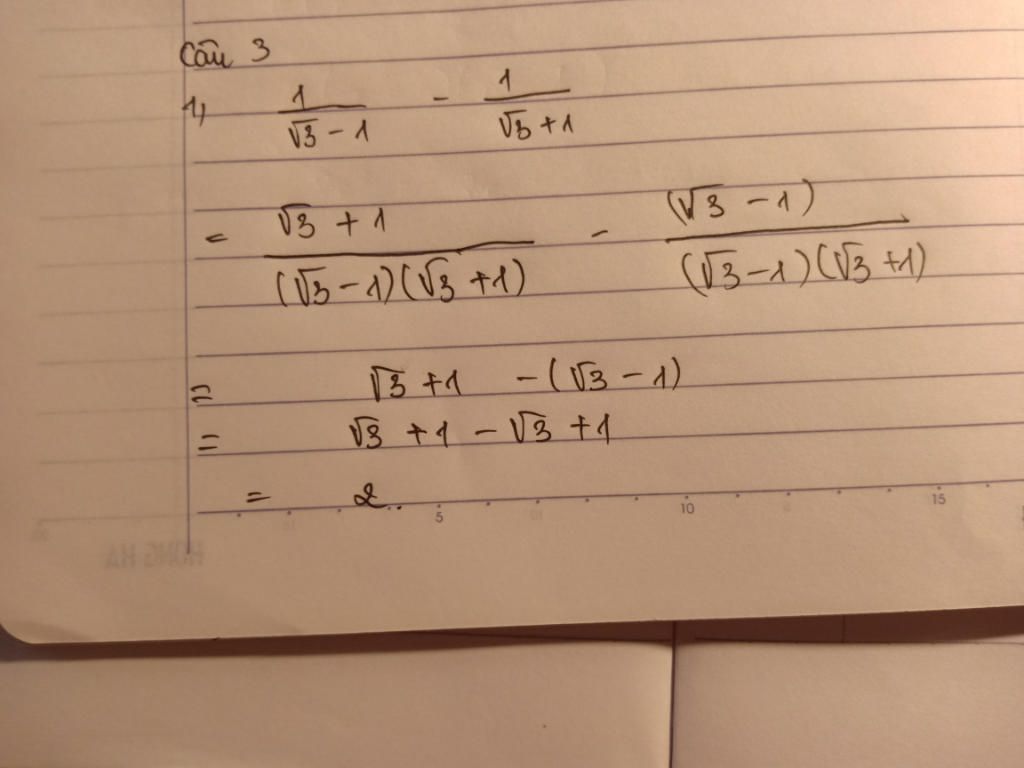 Câu 3
1, 1/(√3 - 1) - 1/(√3 + 1)
= (√3 + 1)/((√3 - 1)(√3 + 1)) - (√3 - 1)/((√3 - 1)(√3 + 1))
= √3 + 1 - (√3 - 1)
= √3 + 1 - √3 + 1
= 2
5 10 15
HONG HA